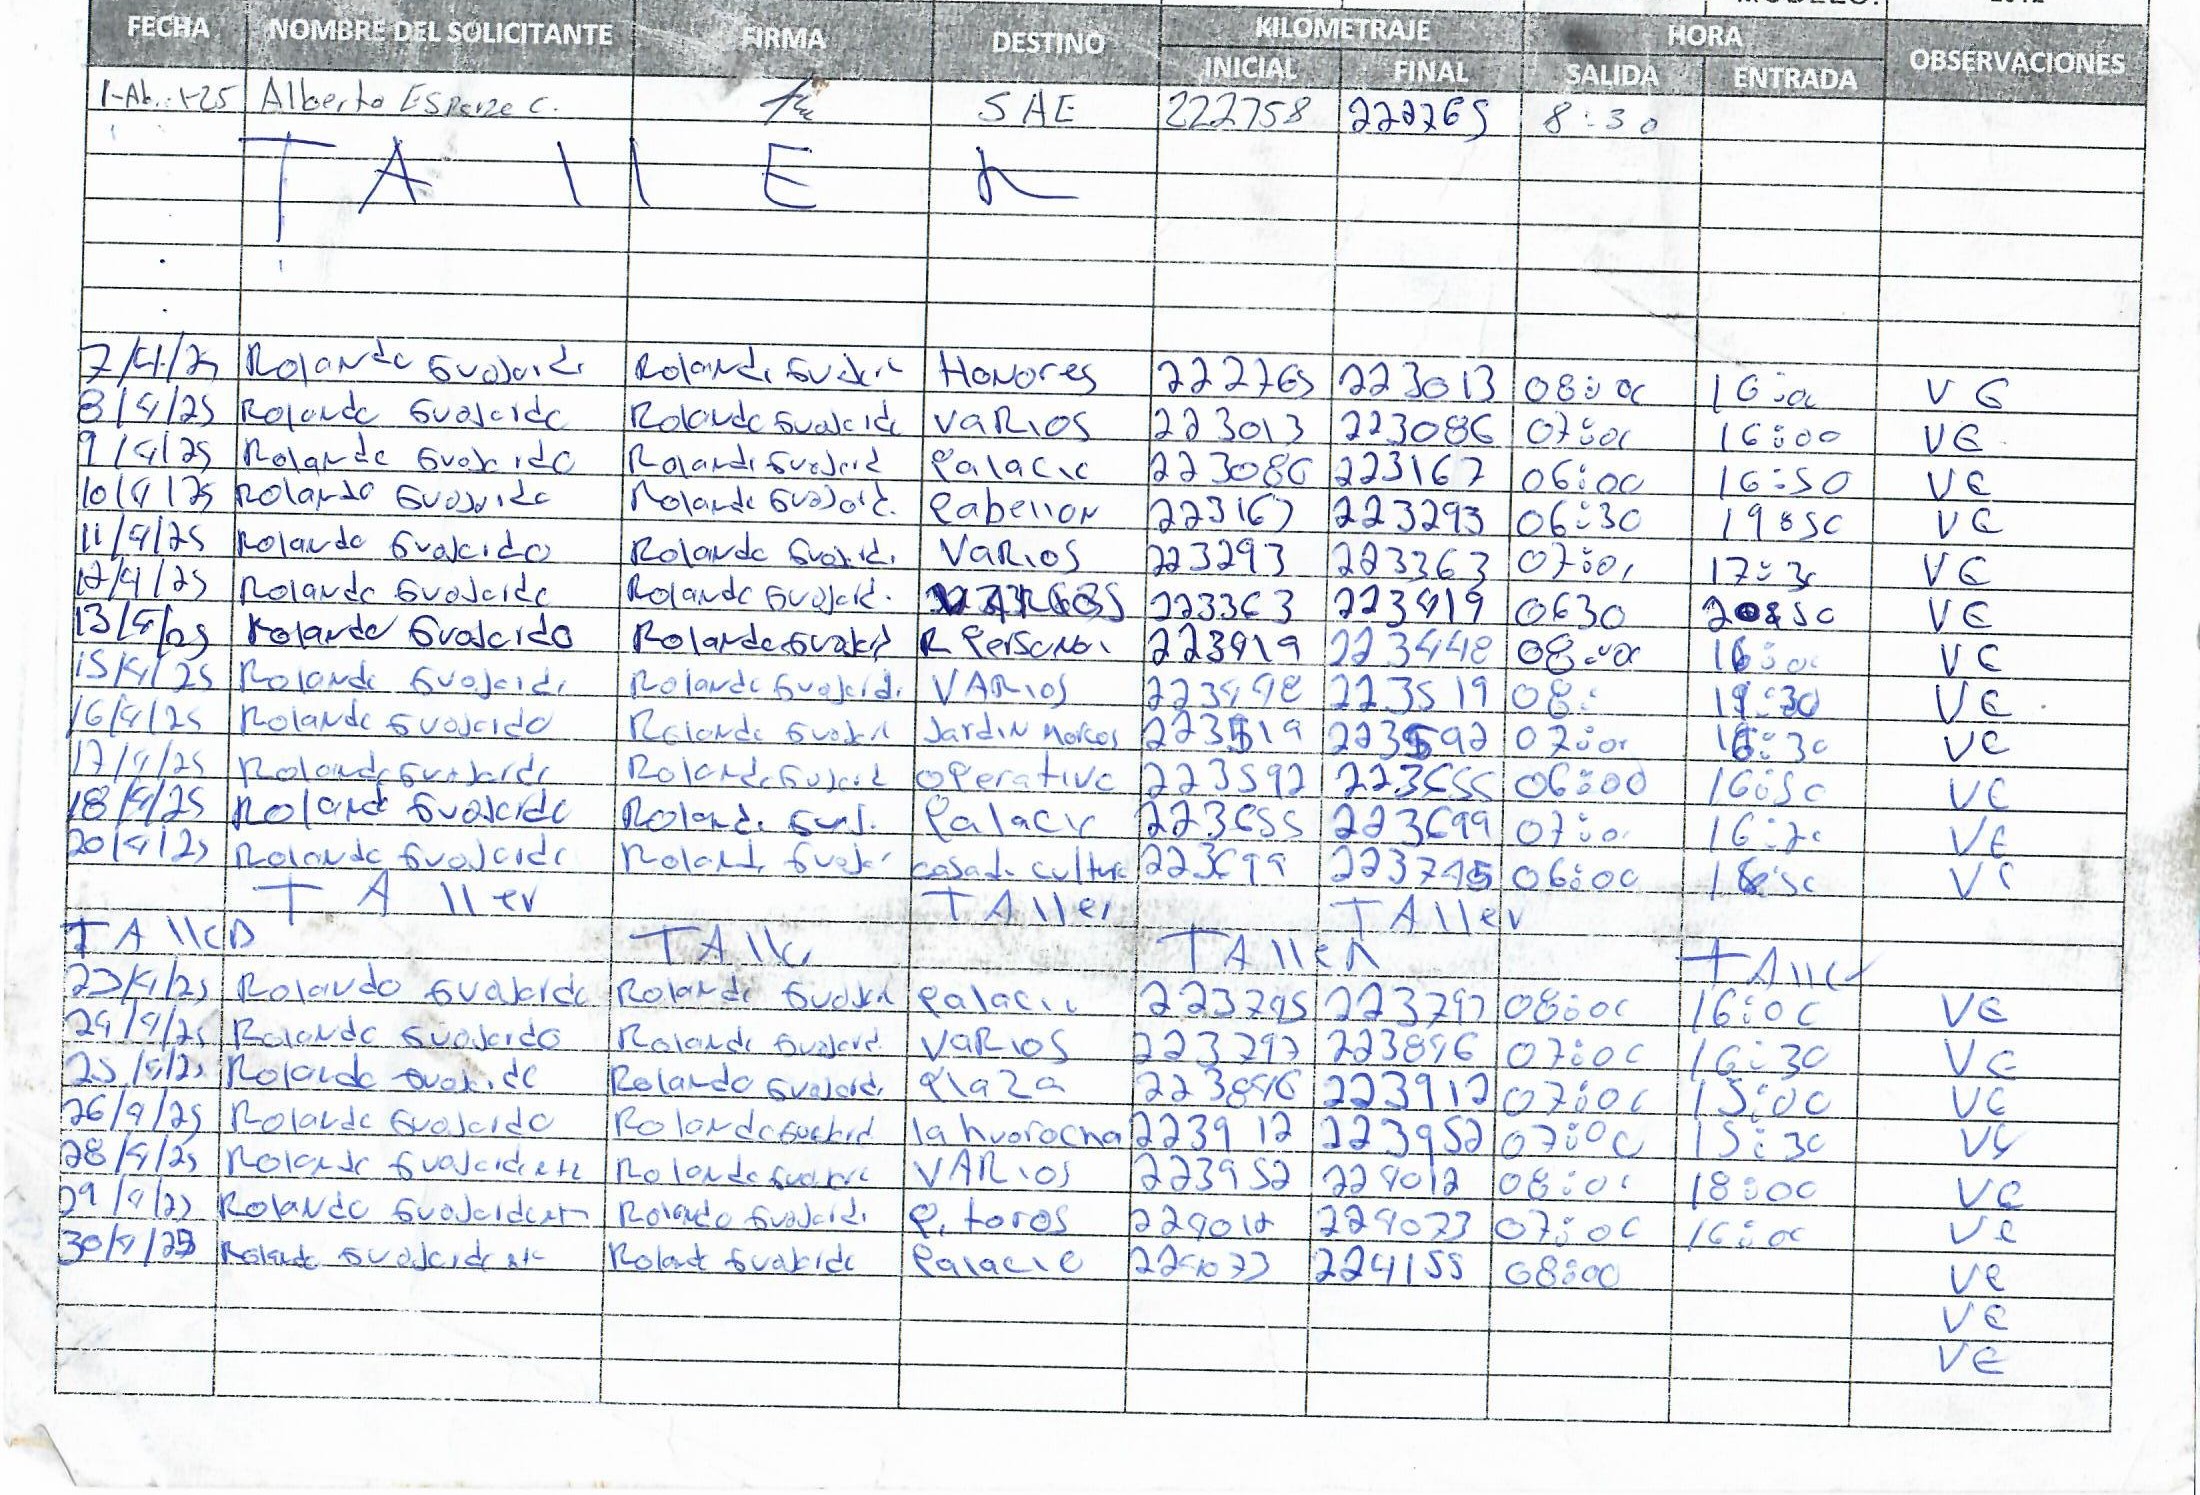 FECHA NOMBRE DEL SOLICITANTE FIRMA DESTINO KILOMETRAJE HORA OBSERVACIONES
INICIAL FINAL SALIDA ENTRADA
Alberto Esparza C. SAE 222758 222765 8:30
TALLER
7/4/25 Rolando Guajardo Rolando Honores 222765 223013 08:00 16:00 VG
8/4/25 Rolando Guajardo Rolando Guajardo VARIOS 223013 223086 07:00 16:00 VG
9/4/25 Rolando Guajardo Rolando Guajard Palacio 223086 223167 06:00 16:50 VG
10/4/25 Rolando Guajardo Rolando Guajard. Pabellon 223167 223293 06:30 19:50 VG
11/4/25 Rolando Guajardo Rolando VARIOS 223293 223363 07:00 17:30 VG
12/4/25 Rolando Guajardo Rolando Guajard. 223363 223419 0630 20:50 VG
13/4/25 Rolando Guajardo Rolando R Personal 223419 223448 08:00 16:00 VG
15/4/25 Rolando Guajardo Rolando VARIOS 223448 223519 08: 19:30 VG
16/4/25 Rolando Guajardo Rolando Jardin Marcos 223519 223592 07:00 16:30 VG
17/4/25 Rolando Guajardo Rolando Operativo 223592 223655 06:00 16:50 VG
18/4/25 Rolando Guajardo Roland. Guaj. Palacio 223655 223699 07:00 VG
20/4/25 Rolando Guajardo Rolando casa de cultura 223699 223745 06:00 VG
TAller TAller TAller
TAlleR TAlle TAlleR TAlle
23/4/25 Rolando Guajardo Rolando Palacio 223745 223797 08:00 16:00 VG
24/4/25 Rolando Guajardo Rolando Guajard VARIOS 223797 223846 07:00 16:30 VG
25/4/25 Rolando Guajardo Rolando Guajard. Plaza 223846 223912 07:00 15:00 VG
26/4/25 Rolando Guajardo Rolando la huorocha 223912 223952 07:00 15:30 VG
28/4/25 Rolando Guajardo Rolando VARIOS 223952 224012 08:00 18:00 VG
29/4/25 Rolando Guajardo Rolando Guajard. P. toros 224012 224073 07:00 16:00 VG
30/4/25 Rolando Guajardo Rolando Guajardo Palacio 224073 224155 08:00 VG
VG
VG